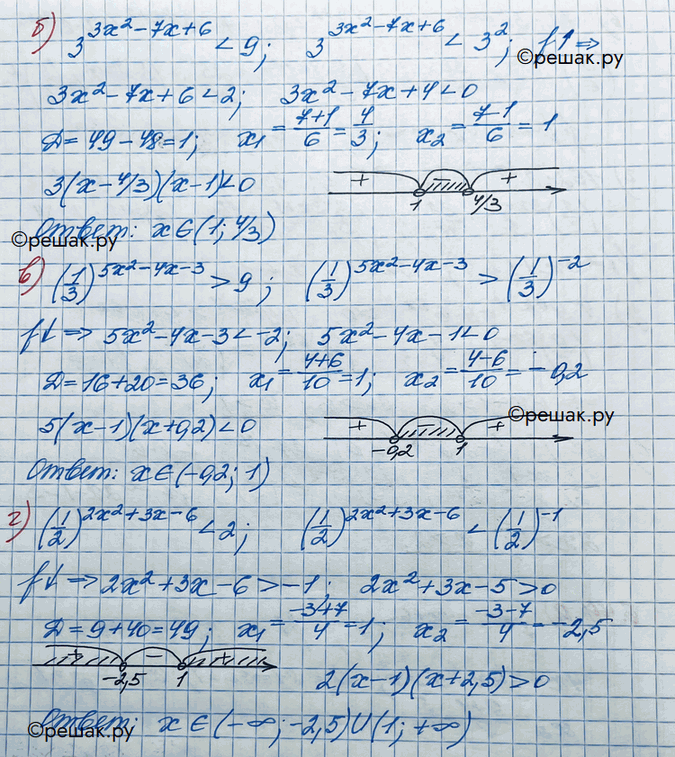 б) 3^(3x²-7x+6) < 9; 3^(3x²-7x+6) < 3²; f↑ ⇒
©решак.ру
3x²-7x+6 < 2; 3x²-7x+4 < 0
D = 49 - 48 = 1; x₁ = (7+1)/6 = 4/3; x₂ = (7-1)/6 = 1
3(x - 4/3)(x - 1) < 0
+ - +
1 4/3
Ответ: x ∈ (1; 4/3)
©решак.ру
в) (1/3)^(5x²-4x-3) > 9; (1/3)^(5x²-4x-3) > (1/3)^(-2)
f↓ ⇒ 5x²-4x-3 < -2; 5x²-4x-1 < 0
D = 16+20 = 36; x₁ = (4+6)/10 = 1; x₂ = (4-6)/10 = -0,2
5(x-1)(x+0,2) < 0
©решак.ру
+ - +
-0,2 1
Ответ: x ∈ (-0,2; 1)
г) (1/2)^(2x²+3x-6) < 2; (1/2)^(2x²+3x-6) < (1/2)^(-1)
f↓ ⇒ 2x²+3x-6 > -1; 2x²+3x-5 > 0
D = 9+40 = 49; x₁ = (-3+7)/4 = 1; x₂ = (-3-7)/4 = -2,5
+ - +
-2,5 1
2(x-1)(x+2,5) > 0
Ответ: x ∈ (-∞; -2,5) ∪ (1; +∞)
©решак.ру